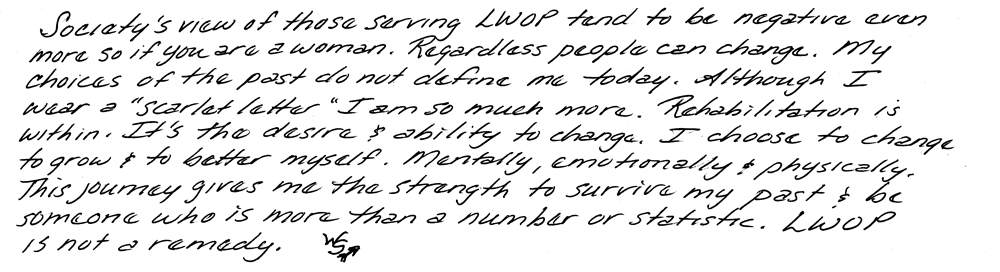 Society's view of those serving LWOP tend to be negative even
more so if you are a woman. Regardless people can change. My
choices of the past do not define me today. Although I
wear a "scarlet letter" I am so much more. Rehabilitation is
within. It's the desire & ability to change. I choose to change
to grow & to better myself. Mentally, emotionally & physically.
This journey gives me the strength to survive my past & be
someone who is more than a number or statistic. LWOP
is not a remedy.